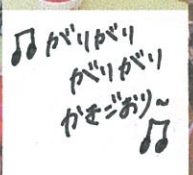 ♫ がりがり
がりがり
かきごおり~
♫